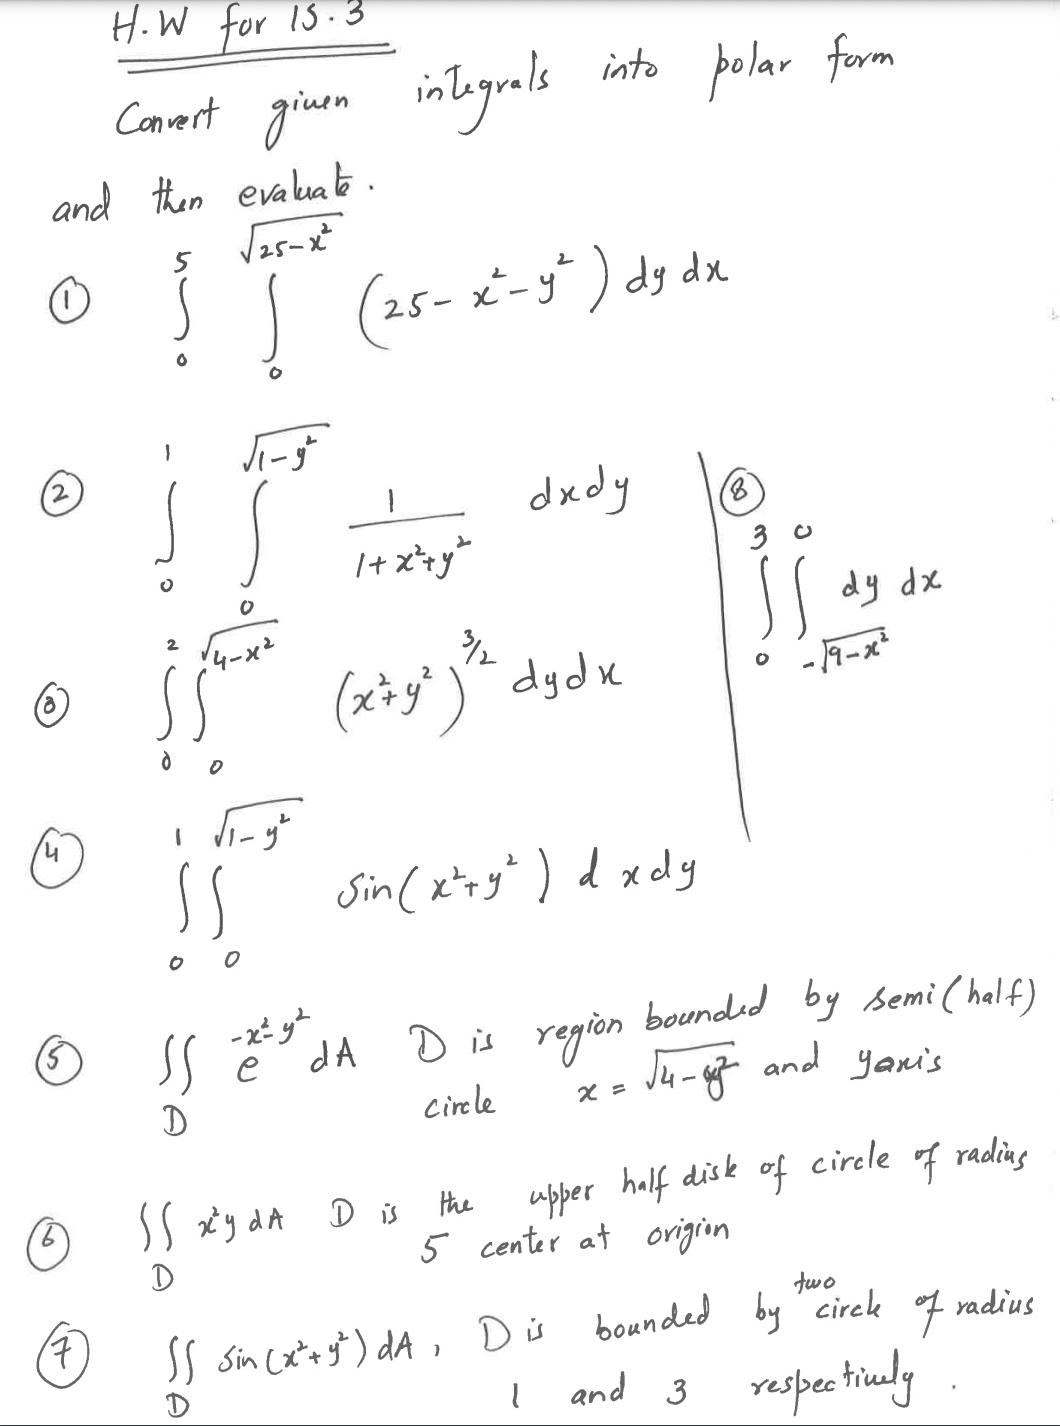 H.W for 15.3
Convert given integrals into polar form
and then evaluate.
① ∫₀⁵ ∫₀^√(25-x²) (25-x²-y²) dy dx
② ∫₀¹ ∫₀^√(1-y²) 1/(1+x²+y²) dxdy
③ ∫₀² ∫₀^√(4-x²) (x²+y²)^(3/2) dydx
④ ∫₀¹ ∫₀^√(1-y²) Sin(x²+y²) dxdy
⑤ ∬_D e^(-x²-y²) dA D is region bounded by semi(half)
circle x = √(4-y²) and yaxis
⑥ ∬_D x²y dA D is the upper half disk of circle of radius
5 center at origion
⑦ ∬_D Sin(x²+y²) dA, D is bounded by two circle of radius
1 and 3 respectively.
⑧ ∫₀³ ∫_(-√(9-x²))^0 dy dx